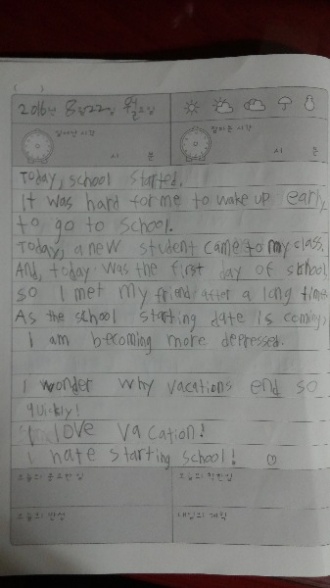 2016년 8월 22일 월요일
일어난 시간
시 분
잠자는 시간
시 분
Today, school started.
It was hard for me to wake up early
to go to school.
Today, a new student came to my class.
And, today was the first day of school
so I met my friend after a long time.
As the school starting date is coming,
I am becoming more depressed.
I wonder why vacations end so
quickly!
I love vacation!
I hate starting school!
오늘의 중요한 일
오늘의 착한일
오늘의 반성
내일의 계획